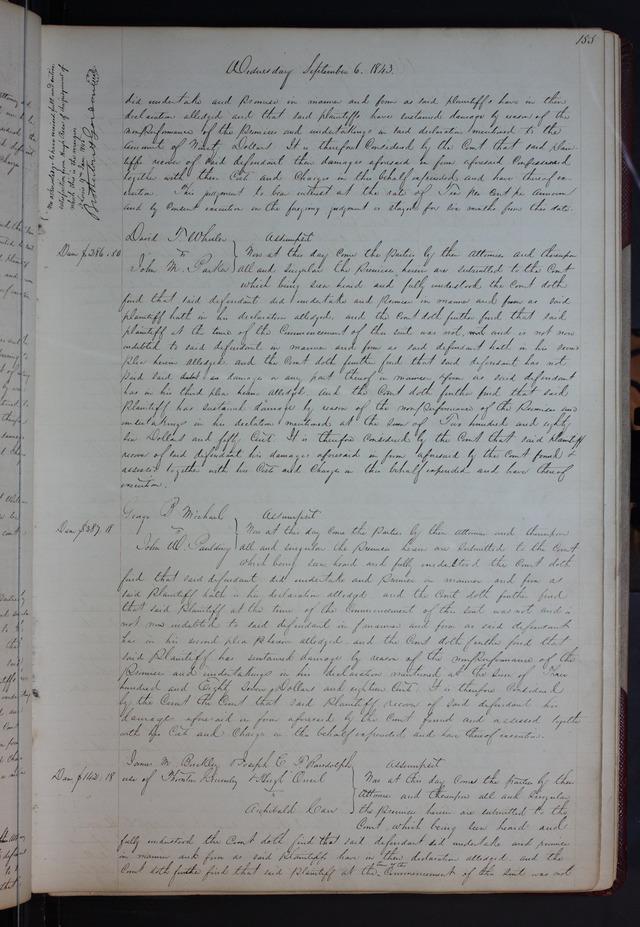 155
Wednesday September 6. 1843.
did undertake and Promise in manner and form as said plaintiffs have in their
declaration alledged and that said plaintiffs have sustained damage by reason of the
nonperformance of the Promises and undertakings in said declaration mentioned to the
amount of Dollars It is therefore Considered by the Court that said plain-
tiffs recover of said defendant their damages aforesaid in form aforesaid Confessed
together with their Costs and Charges in this behalf expended and have thereof ex-
ecution This judgment to bear interest at the rate of Ten per cent per annum
and by consent execution on the foregoing judgment is stayed for six months from this date.
David T. Wheeler Assumpsit
vs
Dam $286.50
John M. Parker
Now at this day come the Parties by their Attornies and thereupon
all and singular the Premises herein are submitted to the Court
which being seen heard and fully understood the Court doth
find that said defendant did undertake and Promise in manner and form as said
plaintiff hath in his declaration alledged, and the Court doth further find that said
plaintiff at the time of the Commencement of this suit was not and is not now
indebted to said defendant in manner and form as said defendant hath in his second
plea herein alledged and the Court doth further find that said defendant has not
paid said debt or damage or any part thereof in manner & form as said defendant
has in his third plea herein alledged, and the Court doth further find that said
Plaintiff has sustained damage by reason of the nonPerformance of the Promises and
undertakings in his declaration mentioned at the sum of Two hundred and eighty
six Dollars and fifty Cents It is therefore Considered by the Court that said plaintiff
recover of said defendant his damages aforesaid in form aforesaid by the Court found &
assessed together with his Costs and Charges in this behalf expended and have thereof
execution.
George R Michael Assumpsit
vs
Dam $387.18
John W. Paulding
Now at this day come the Parties by their Attornies and thereupon
all and singular the Premises herein are submitted to the Court
which being seen heard and fully understood the Court doth
find that said defendant did undertake and Promise in manner and form as
said Plaintiff hath in his declaration alledged and the Court doth further find
that said Plaintiff at the time of the Commencement of this suit was not and is
not now indebted to said defendant in manner and form as said defendant
has in his second plea herein alledged and the Court doth further find that
said Plaintiff has sustained damage by reason of the nonPerformance of the
Promises and undertakings in his declaration mentioned at the sum of
hundred and Eighty Seven Dollars and eighteen Cents. It is therefore Considered
by the Court the Court that said Plaintiff recover of said defendant his
damage aforesaid in form aforesaid by the Court found and assessed together
with his Costs and Charges in this behalf expended and have thereof execution.
James W. Buckley & Joseph C. P. Randolph Assumpsit
use of Thornton Grimsley & Hugh
vs
Dam $142.18
Archibald Carr
Now at this day Comes the parties by their
Attornies and thereupon all and Singular
the Premises herein are submitted to the
Court, which being seen heard and
fully understood the Court doth find that said defendant did undertake and promise
in manner and form as said Plaintiffs have in their declaration alledged and the
Court doth further find that said Plaintiff at the time of the Commencement of this suit was not